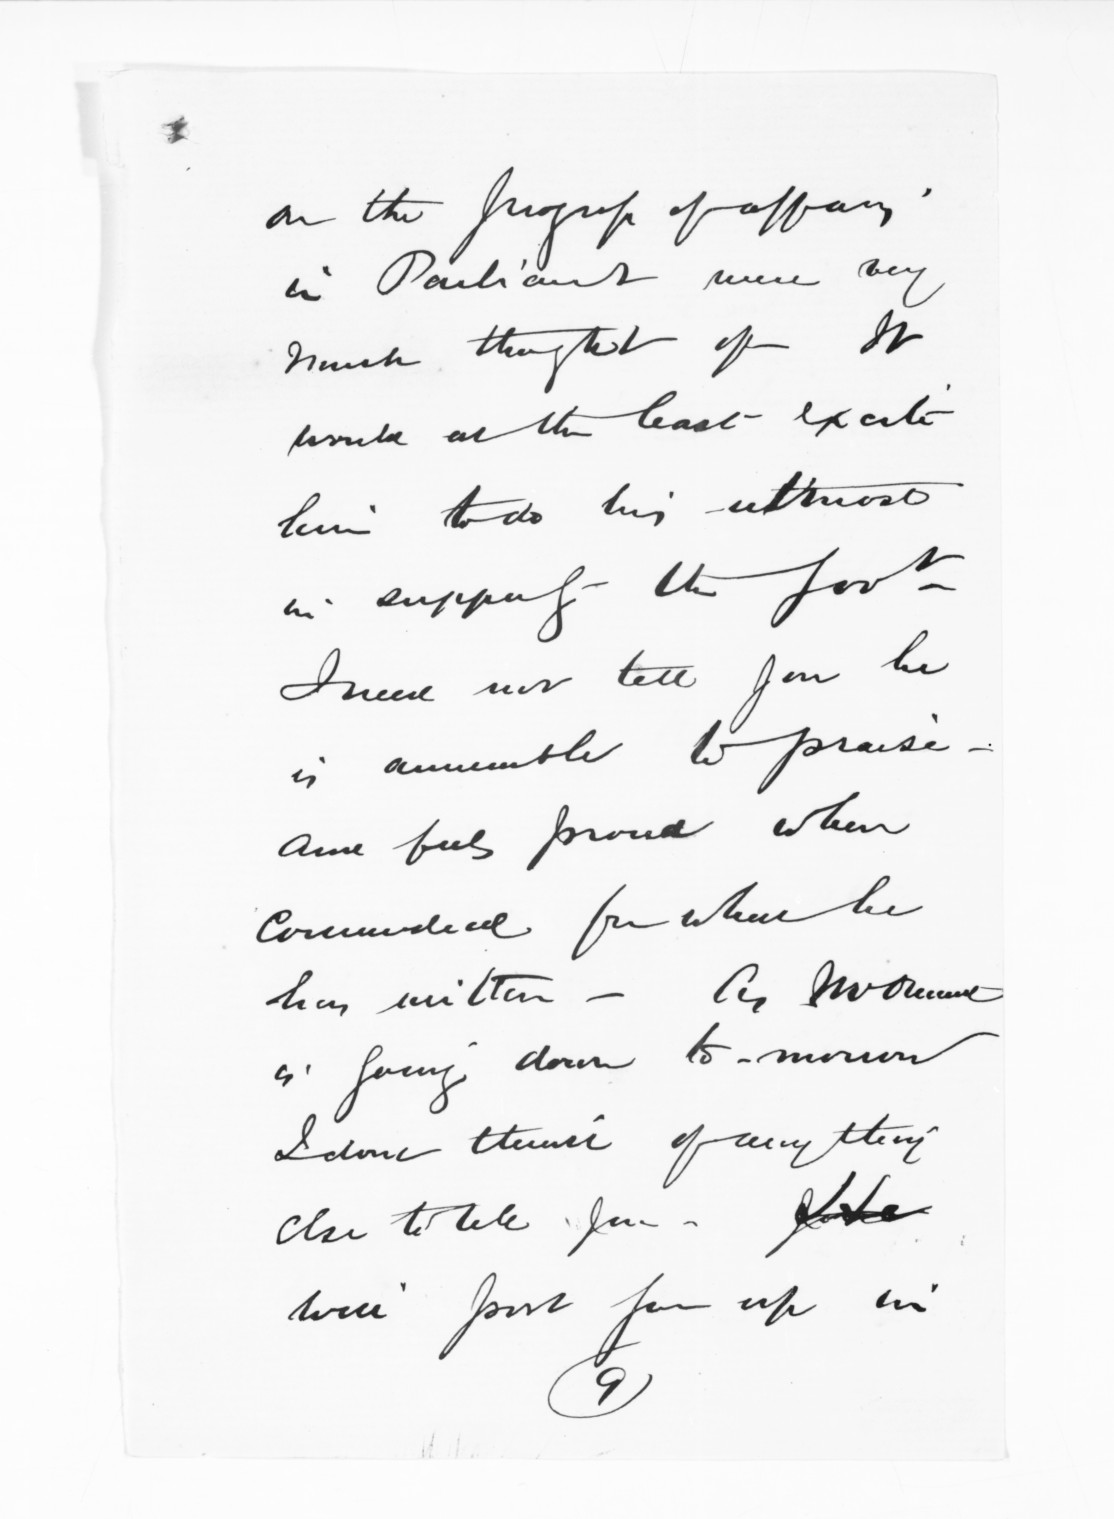 on the progress of affairs
in Parliament were very
much thought of It
would at the least excite
him to do his utmost
in support of the Govt
I need not tell you he
is amenable to praise -
and feels proud when
commended for what he
has written - As
is going down to-morrow
I dont think of anything
else to tell you -
will post you up in
9